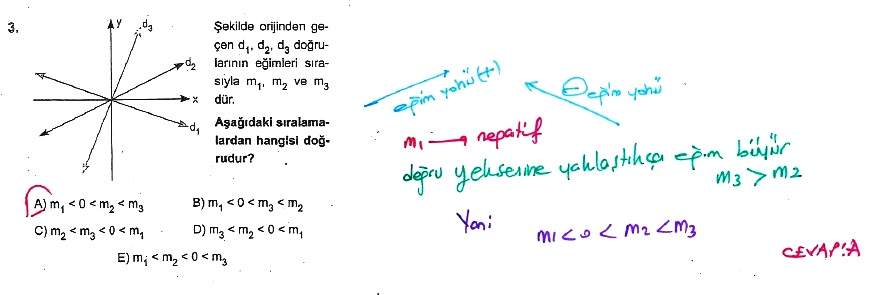 3.
y
d3
d2
x
d1
Şekilde orijinden ge-
çen d1, d2, d3 doğru-
larının eğimleri sıra-
sıyla m1, m2 ve m3
dür.
Aşağıdaki sıralama-
lardan hangisi doğ-
rudur?
A) m1 < 0 < m2 < m3
B) m1 < 0 < m3 < m2
C) m2 < m3 < 0 < m1
D) m3 < m2 < 0 < m1
E) m1 < m2 < 0 < m3
eğim yönü (+)
⊖ eğim yönü
m1 → negatif
doğru y eksenine yaklaştıkça eğim büyür
m3 > m2
Yani
m1 < 0 < m2 < m3
CEVAP: A